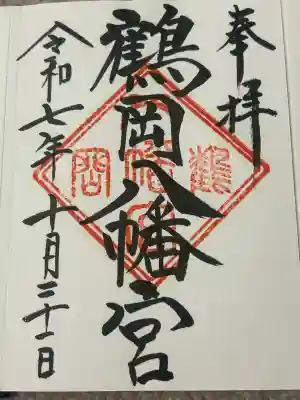 奉拝
鶴岡八幡宮
令和七年十月二十一日